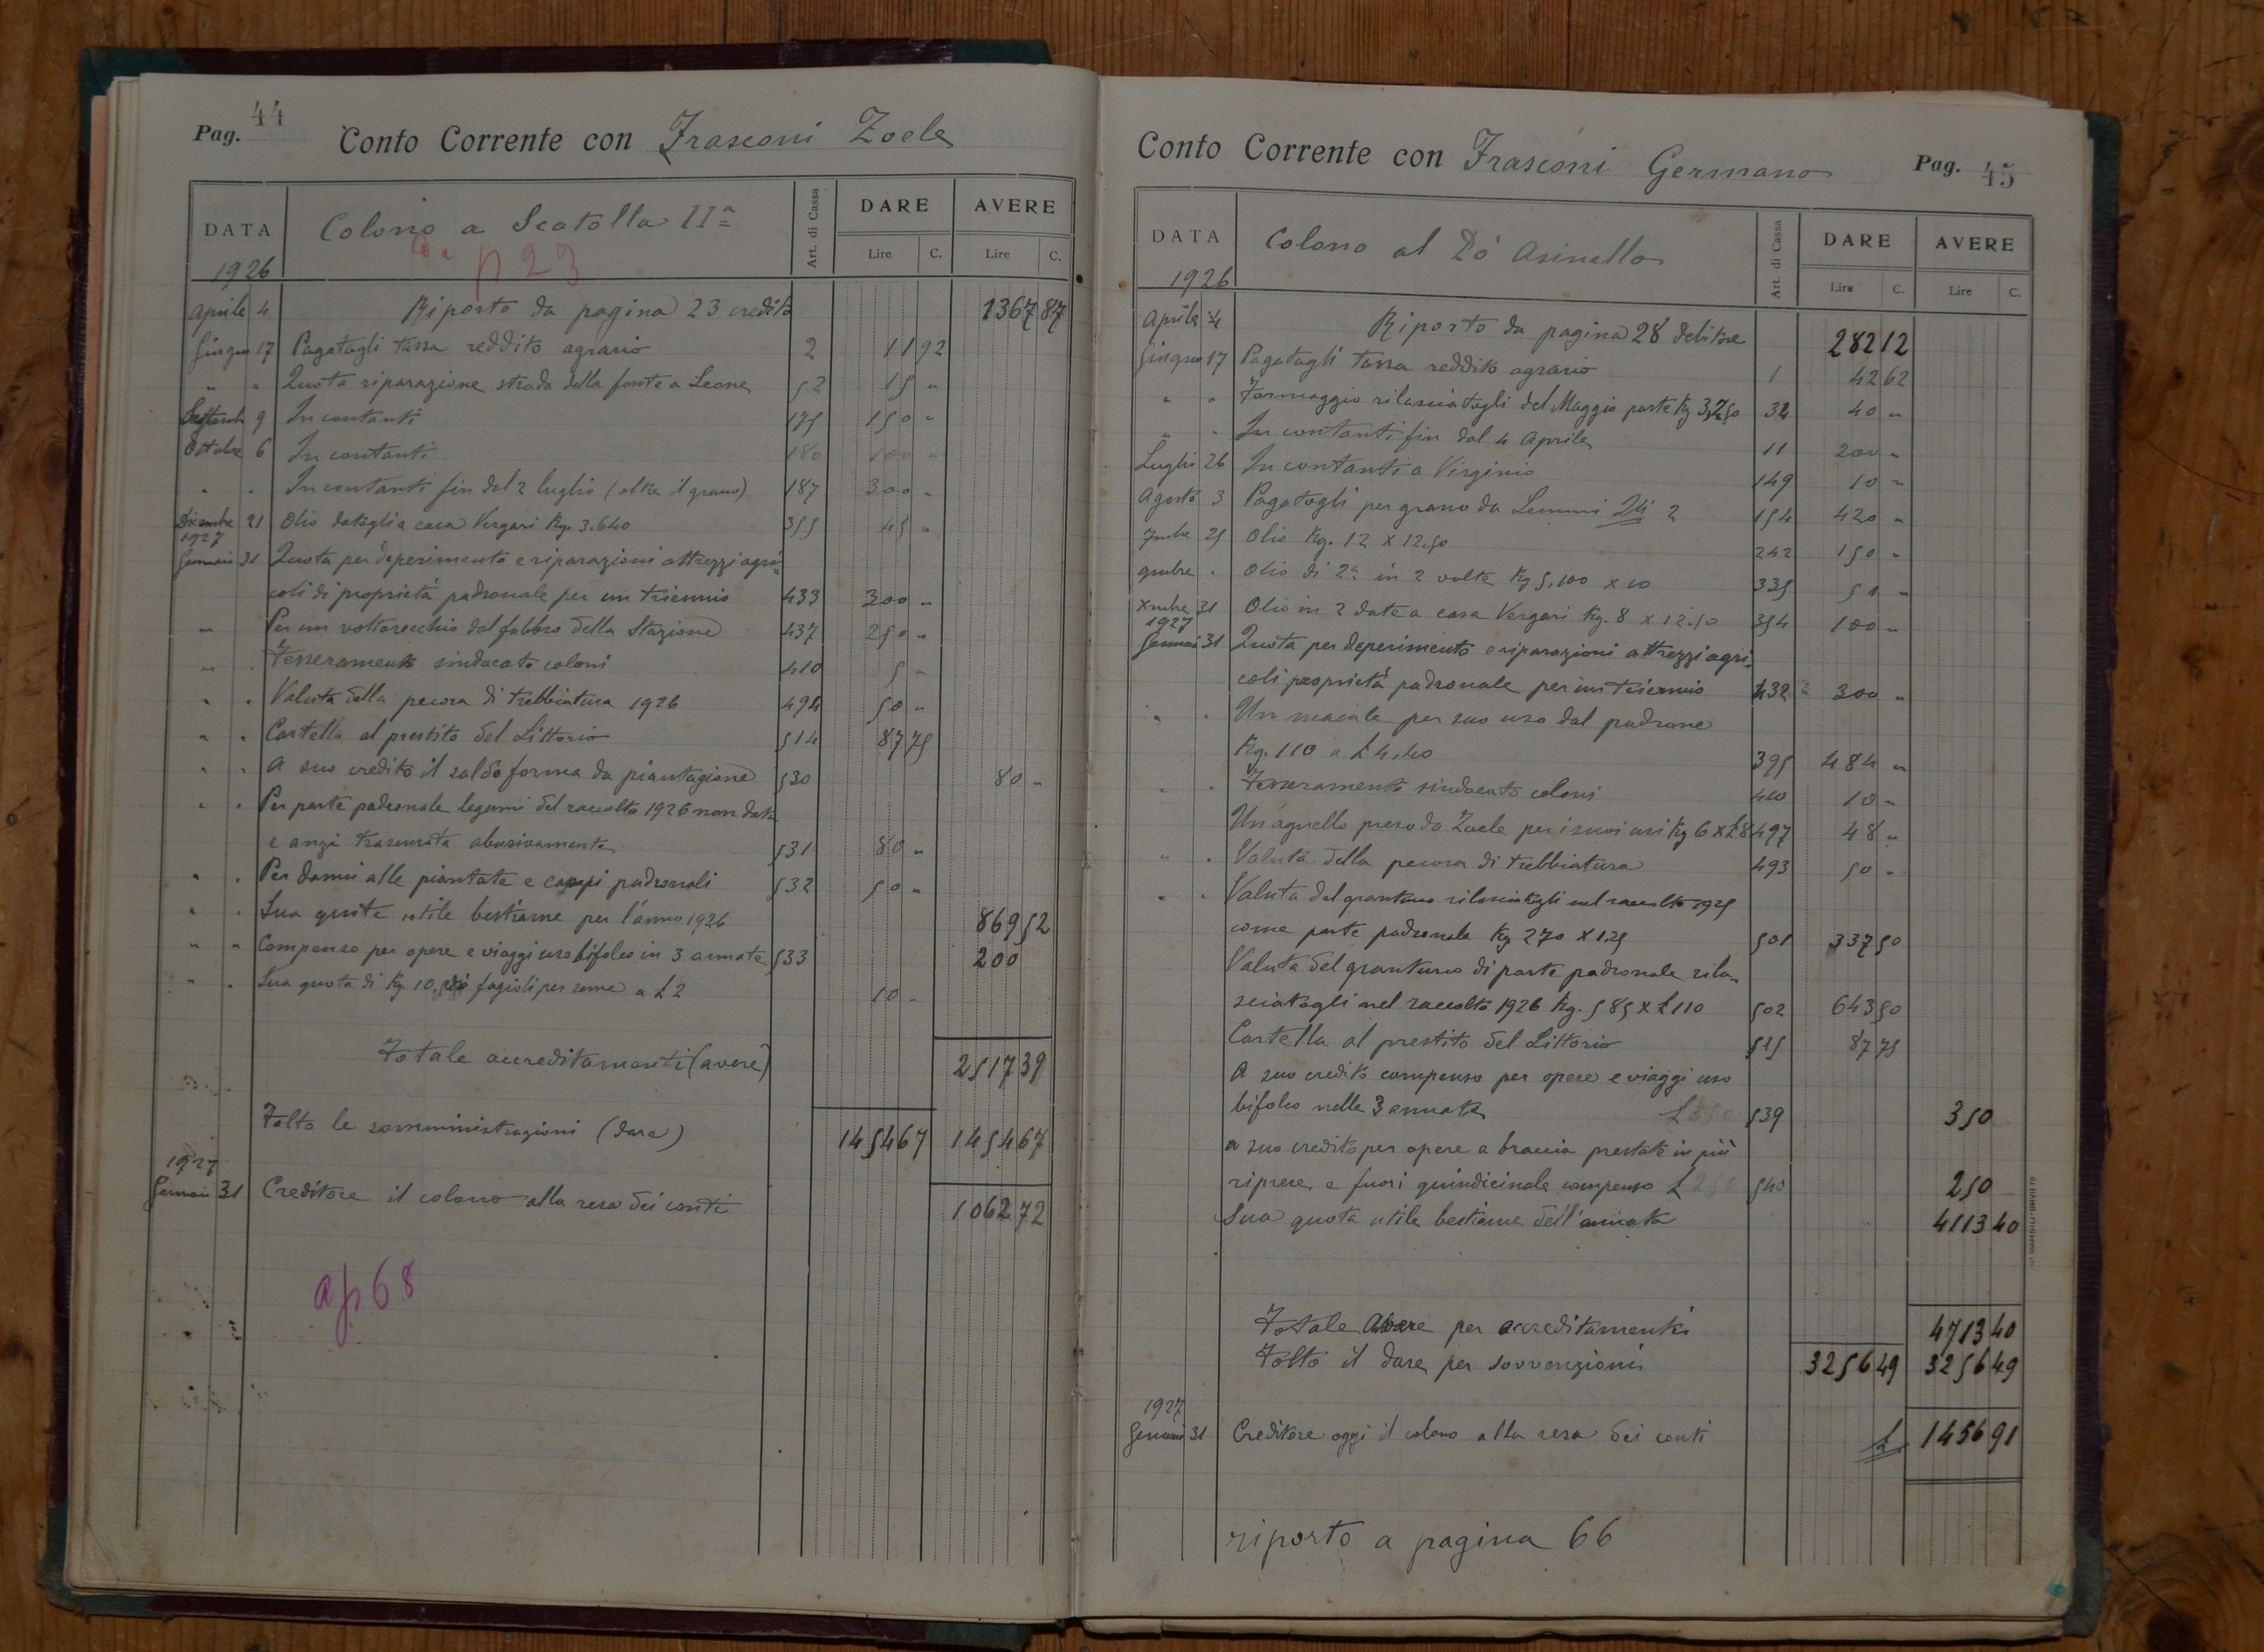 Pag. 44
Conto Corrente con Frasconi Zoele
DATA
1926
Colono a Scatolla IIª
Da p 23
Art. di Cassa
DARE
AVERE
Lire C. Lire C.
Aprile 4 Riporto da pagina 23 credito 1367 87
Giugno 17 Pagatogli tassa reddito agrario 2 11 92
" " Quota riparazione strada della fonte a Leone 52 15 "
Settembre 9 In contanti 175 150 "
Ottobre 6 In contanti 180 100 "
" " In contanti fin dal 2 luglio (oltre il grano) 187 300 "
Dicembre 21 Olio datogli a casa Vergari Kg. 3.640 355 45 "
1927
Gennaio 31 Quota per deperimento e riparazioni attrezzi agri=
coli di proprietà padronale per un triennio 433 300 "
" Per un voltorecchio dal fabbro della Stazione 437 250 "
" " Tesseramento sindacato coloni 410 5 "
" " Valuta della pecora di trebbiatura 1926 494 50 "
" " Cartella al prestito del Littorio 514 87 75
" " A suo credito il saldo forma da piantagione 530 80 "
" " Per parte padronale legumi del raccolto 1926 non data
e anzi trascurata abusivamente 531 80 "
" " Per danni alle piantate e campi padronali 532 50 "
" " Sua quota utile bestiame per l'anno 1926 869 52
" " Compenso per opere e viaggi uso bifolco in 3 annate 533 200
" " Sua quota di Kg 10, fagioli per seme a £ 2 10 "
Totale accreditamenti (avere) 2517 39
Tolto le somministrazioni (dare) 1454 67 1454 67
1927
Gennaio 31 Creditore il colono alla resa dei conti 1062 72
a p 68
Conto Corrente con Frasconi Germano
Pag. 45
DATA
1926
Colono al Pò Asinello
Art. di Cassa
DARE
AVERE
Lire C. Lire C.
Aprile 4 Riporto da pagina 28 debitore 282 12
Giugno 17 Pagatogli tassa reddito agrario 1 42 62
" " Formaggio rilasciatogli del Maggio parte Kg 32 40 "
" " In contanti fin dal 4 Aprile 11 200 "
Luglio 26 In contanti a Virginio 149 10 "
Agosto 3 Pagatogli per grano da Lemmi 2 154 420 "
7mbre 25 Olio Kg. 12 x 12.50 242 150 "
9mbre " Olio di 2ª in 2 volte Kg 5.100 x 10 335 51 "
Xmbre 31 Olio in 2 date a casa Vergari Kg. 8 x 12.50 354 100 "
1927
Gennaio 31 Quota per deperimento e riparazioni attrezzi agri=
coli proprietà padronale per un triennio 432 300 "
" " Un maiale per suo uso dal padrone
Kg. 110 a £ 4.40 395 484 "
" " Tesseramento sindacato coloni 410 10 "
Un agnello preso da Zoele per i suoi usi Kg 6 x £ 8 497 48 "
" " Valuta della pecora di trebbiatura 493 50 "
" " Valuta del granturco rilasciatogli nel raccolto 1925
come parte padronale Kg 270 x 1.25 501 337 50
Valuta del granturco di parte padronale rila=
sciatogli nel raccolto 1926 Kg. 585 x £ 1.10 502 643 50
Cartella al prestito del Littorio 515 87 75
A suo credito compenso per opere e viaggi uso
bifolco nelle 3 annate £ 350 539 350
a suo credito per opere a braccia prestate in più
riprese e fuori quindicinale compenso £ 250 540 250
Sua quota utile bestiame dell'annata 4113 40
Totale Avere per accreditamenti 4713 40
Tolto il dare per sovvenzioni 3256 49 3256 49
1927
Gennaio 31 Creditore oggi il colono alla resa dei conti £ 1456 91
riporto a pagina 66